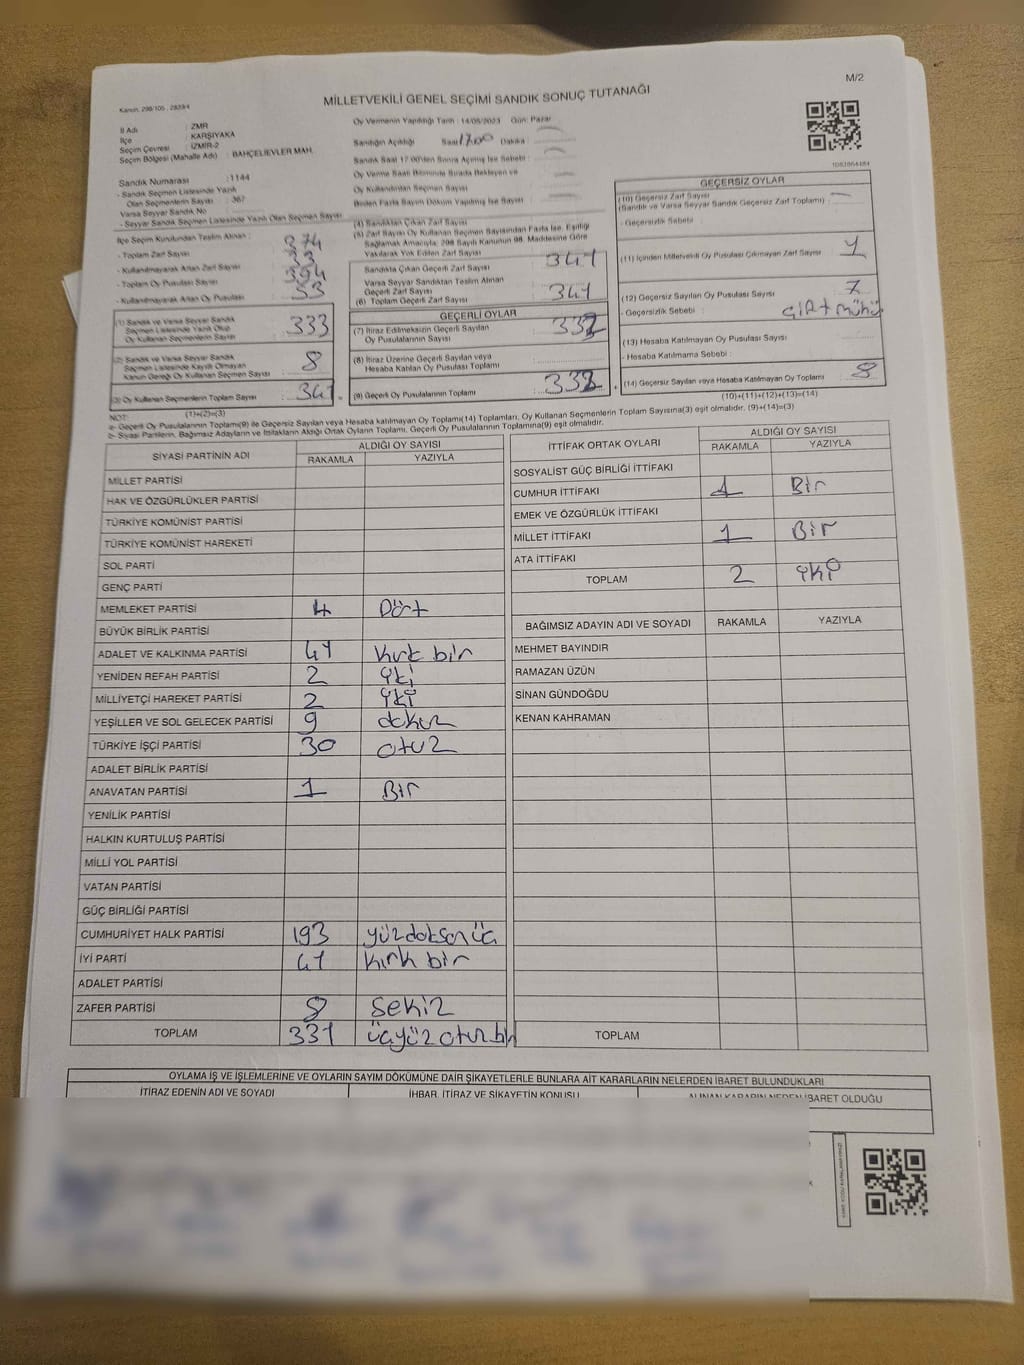 M/2
Kanun: 298/105 , 2839/4
MİLLETVEKİLİ GENEL SEÇİMİ SANDIK SONUÇ TUTANAĞI
İl Adı : ZMR
İlçe : KARŞIYAKA
Seçim Çevresi : İZMİR-2
Seçim Bölgesi (Mahalle Adı) : BAHÇELİEVLER MAH.
Sandık Numarası : 1144
- Sandık Seçmen Listesinde Yazılı
Olan Seçmenlerin Sayısı : 367
Varsa Seyyar Sandık No
- Seyyar Sandık Seçmen Listesinde Yazılı Olan Seçmen Sayısı
İlçe Seçim Kurulundan Teslim Alınan :
- Toplam Zarf Sayısı 374
- Kullanılmayarak Artan Zarf Sayısı 33
- Toplam Oy Pusulası Sayısı 394
- Kullanılmayarak Artan Oy Pusulası 53
(1) Sandık ve Varsa Seyyar Sandık
Seçmen Listesinde Yazılı Olup
Oy Kullanan Seçmenlerin Sayısı : 333
(2) Sandık ve Varsa Seyyar Sandık
Seçmen Listesinde Kayıtlı Olmayan
Kanun Gereği Oy Kullanan Seçmen Sayısı : 8
(3) Oy Kullanan Seçmenlerin Toplam Sayısı : 341
(1)+(2)=(3)
Oy Vermenin Yapıldığı Tarih : 14/05/2023 Gün: Pazar
Sandığın Açıldığı Saat 17.00 Dakika :
Sandık Saat 17.00'den Sonra Açılmış İse Sebebi :
Oy Verme Saati Bitiminde Sırada Bekleyen ve
Oy Kullandırılan Seçmen Sayısı
Birden Fazla Sayım Döküm Yapılmış İse Sayısı
(4) Sandıktan Çıkan Zarf Sayısı
(5) Zarf Sayısı Oy Kullanan Seçmen Sayısından Fazla İse, Eşitliği
Sağlamak Amacıyla, 298 Sayılı Kanunun 98. Maddesine Göre
Yakılarak Yok Edilen Zarf Sayısı
Sandıkta Çıkan Geçerli Zarf Sayısı 341
Varsa Seyyar Sandıktan Teslim Alınan
Geçerli Zarf Sayısı
(6) Toplam Geçerli Zarf Sayısı 341
GEÇERLİ OYLAR
(7) İtiraz Edilmeksizin Geçerli Sayılan
Oy Pusulalarının Sayısı 333
(8) İtiraz Üzerine Geçerli Sayılan veya
Hesaba Katılan Oy Pusulası Toplamı
(9) Geçerli Oy Pusulalarının Toplamı : 333
1083964484
GEÇERSİZ OYLAR
(10) Geçersiz Zarf Sayısı
(Sandık ve Varsa Seyyar Sandık Geçersiz Zarf Toplamı) :
- Geçersizlik Sebebi :
(11) İçinden Milletvekili Oy Pusulası Çıkmayan Zarf Sayısı 1
(12) Geçersiz Sayılan Oy Pusulası Sayısı : 7
- Geçersizlik Sebebi : çift mühür
(13) Hesaba Katılmayan Oy Pusulası Sayısı
- Hesaba Katılmama Sebebi :
(14) Geçersiz Sayılan veya Hesaba Katılmayan Oy Toplamı : 8
(10)+(11)+(12)+(13)=(14)
NOT:
a- Geçerli Oy Pusulalarının Toplamı(9) ile Geçersiz Sayılan veya Hesaba katılmayan Oy Toplamı(14) Toplamları, Oy Kullanan Seçmenlerin Toplam Sayısına(3) eşit olmalıdır. (9)+(14)=(3)
b- Siyasi Partilerin, Bağımsız Adayların ve İttifakların Aldığı Ortak Oyların Toplamı, Geçerli Oy Pusulalarının Toplamına(9) eşit olmalıdır.
SİYASİ PARTİNİN ADI ALDIĞI OY SAYISI
RAKAMLA YAZIYLA
MİLLET PARTİSİ
HAK VE ÖZGÜRLÜKLER PARTİSİ
TÜRKİYE KOMÜNİST PARTİSİ
TÜRKİYE KOMÜNİST HAREKETİ
SOL PARTİ
GENÇ PARTİ
MEMLEKET PARTİSİ 4 Dört
BÜYÜK BİRLİK PARTİSİ
ADALET VE KALKINMA PARTİSİ 41 Kırk bir
YENİDEN REFAH PARTİSİ 2 iki
MİLLİYETÇİ HAREKET PARTİSİ 2 iki
YEŞİLLER VE SOL GELECEK PARTİSİ 9 dokuz
TÜRKİYE İŞÇİ PARTİSİ 30 otuz
ADALET BİRLİK PARTİSİ
ANAVATAN PARTİSİ 1 Bir
YENİLİK PARTİSİ
HALKIN KURTULUŞ PARTİSİ
MİLLİ YOL PARTİSİ
VATAN PARTİSİ
GÜÇ BİRLİĞİ PARTİSİ
CUMHURİYET HALK PARTİSİ 193 yüzdoksan üç
İYİ PARTİ 41 kırk bir
ADALET PARTİSİ
ZAFER PARTİSİ 8 Sekiz
TOPLAM 331 üçyüz otuz bir
İTTİFAK ORTAK OYLARI ALDIĞI OY SAYISI
RAKAMLA YAZIYLA
SOSYALİST GÜÇ BİRLİĞİ İTTİFAKI
CUMHUR İTTİFAKI 1 Bir
EMEK VE ÖZGÜRLÜK İTTİFAKI
MİLLET İTTİFAKI 1 Bir
ATA İTTİFAKI
TOPLAM 2 iki
BAĞIMSIZ ADAYIN ADI VE SOYADI RAKAMLA YAZIYLA
MEHMET BAYINDIR
RAMAZAN ÜZÜN
SİNAN GÜNDOĞDU
KENAN KAHRAMAN
TOPLAM
OYLAMA İŞ VE İŞLEMLERİNE VE OYLARIN SAYIM DÖKÜMÜNE DAİR ŞİKAYETLERLE BUNLARA AİT KARARLARIN NELERDEN İBARET BULUNDUKLARI
İTİRAZ EDENİN ADI VE SOYADI İHBAR, İTİRAZ VE ŞİKAYETİN KONUSU ALINAN KARARIN NEDEN İBARET OLDUĞU